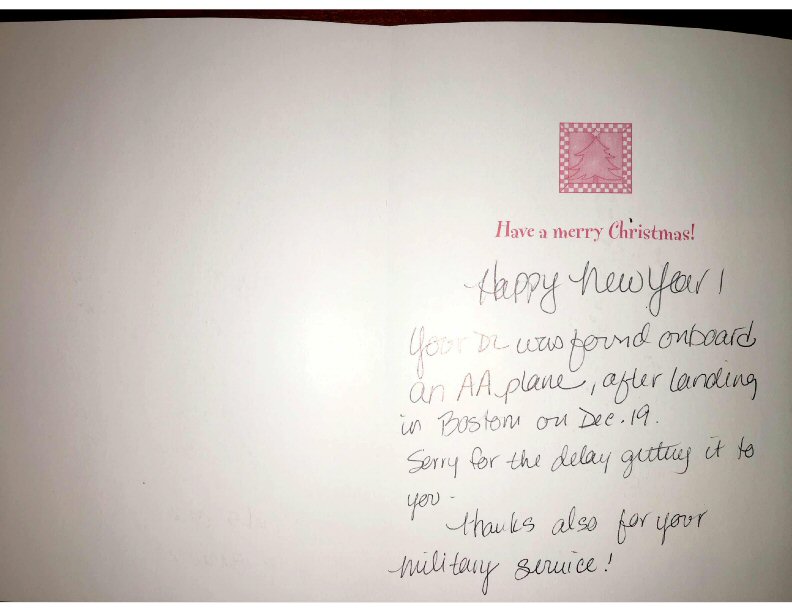 Have a merry Christmas!
Happy New Year!
Your DL was found onboard
an AA plane, after landing
in Boston on Dec. 19.
Sorry for the delay getting it to
you.
Thanks also for your
military service!